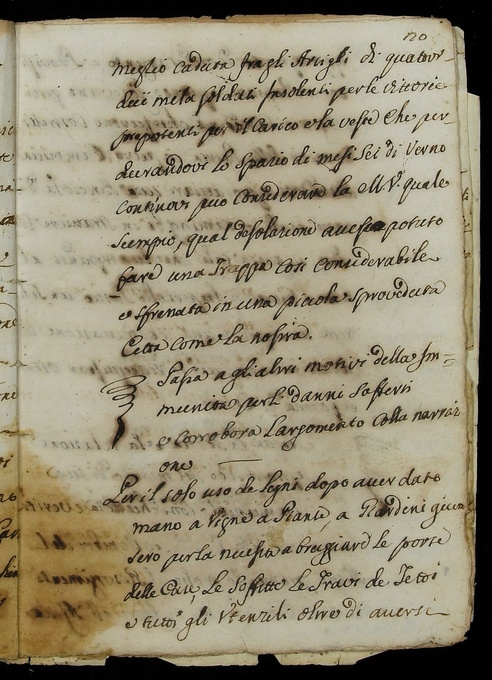 120
meglio caduta fra gli Artigli di quator-
deci mila soldati Insolenti per le vittorie
inpotenti per il Carico e la veste Che per
durandovi lo spazio di mesi sei di Verno
continovi può Considerare la M.V. quale
Scempio, qual desolazione avesse potuto
fare una Trappa Così Considerabile
e sfrenata in una piccola sproveduta
Città come la nostra.
Passa agli altri motivi della Im=
munita per li danni Sofferti
e Corrobora l'argomento Colla narrazi
one
Per il solo uso de Legni dopo aver dato
mano a Vigne a Piante, a Giardini giun
sero per la necessita a bruggiare le porte
delle Case, Le Soffitte Le Travi de Tetti
e tutti gli Utenzili oltre di aversi